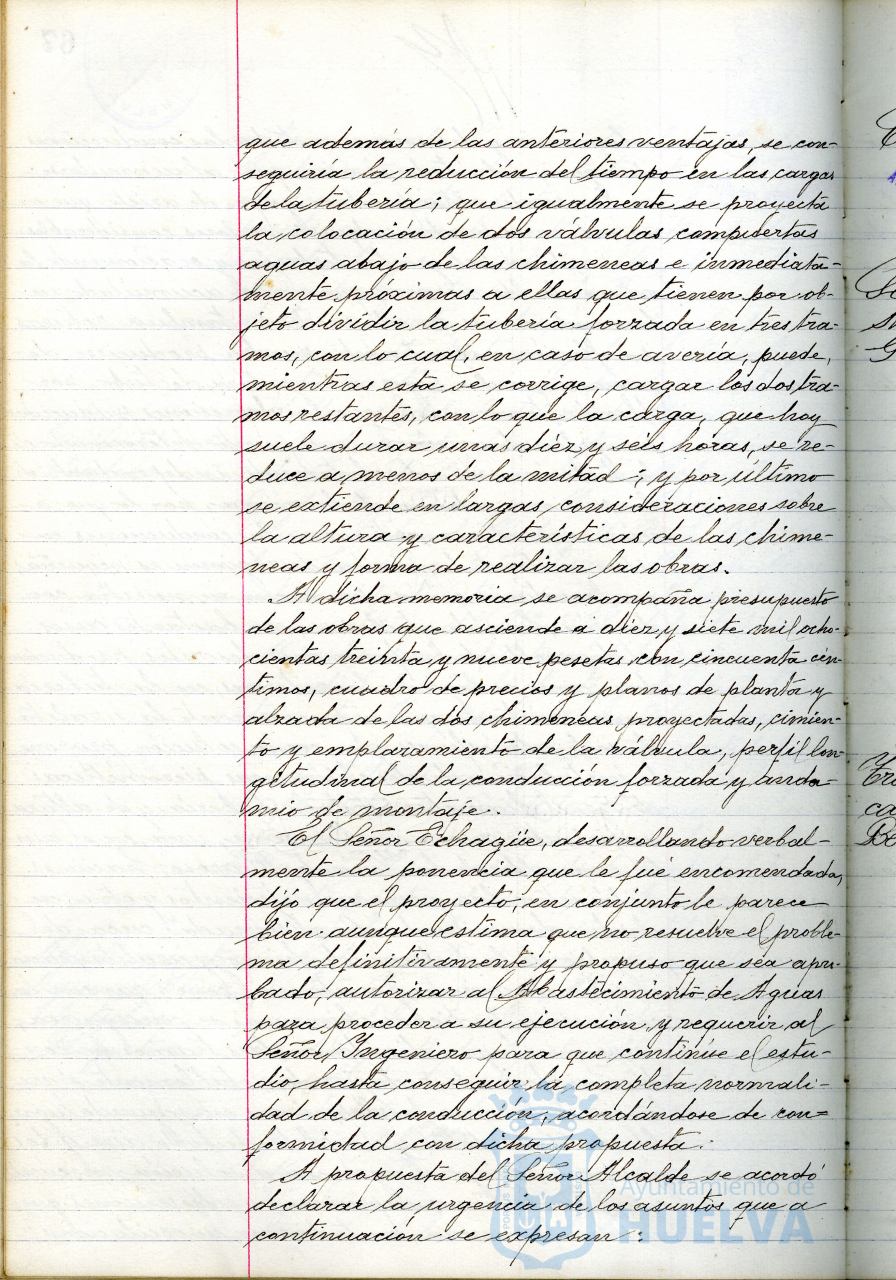 que además de las anteriores ventajas, se con-
seguiría la reducción del tiempo en las cargas
de la tubería; que igualmente se proyecta
la colocación de dos válvulas compuertas
aguas abajo de las chimeneas e inmediata-
mente próximas a ellas que tienen por ob-
jeto dividir la tubería forzada en tres tra-
mos, con lo cual, en caso de avería, puede,
mientras esta se corrige, cargar los dos tra-
mos restantes, con lo que la carga, que hoy
suele durar unas diez y seis horas, se re-
duce a menos de la mitad; y por último
se extiende en largas consideraciones sobre
la altura y características de las chime-
neas y forma de realizar las obras.
A dicha memoria se acompaña presupuesto
de las obras que asciende a diez y siete mil ocho-
cientas treinta y nueve pesetas con cincuenta cén-
timos, cuadro de precios y planos de planta y
alzada de las dos chimeneas proyectadas, cimien-
to y emplazamiento de la válvula, perfil lon-
gitudinal de la conducción forzada y anda-
mio de montaje.
El Señor Echagüe, desarrollando verbal-
mente la ponencia que le fué encomendada,
dijo que el proyecto, en conjunto le parece
bien aunque estima que no resuelve el proble-
ma definitivamente y propuso que sea apro-
bado, autorizar al Abastecimiento de Aguas
para proceder a su ejecución y requerir al
Señor Ingeniero para que continúe el estu-
dio, hasta conseguir la completa normali-
dad de la conducción; acordándose de con=
formidad con dicha propuesta.
A propuesta del Señor Alcalde se acordó
declarar la urgencia de los asuntos que a
continuación se expresan:
Ayuntamiento de
HUELVA